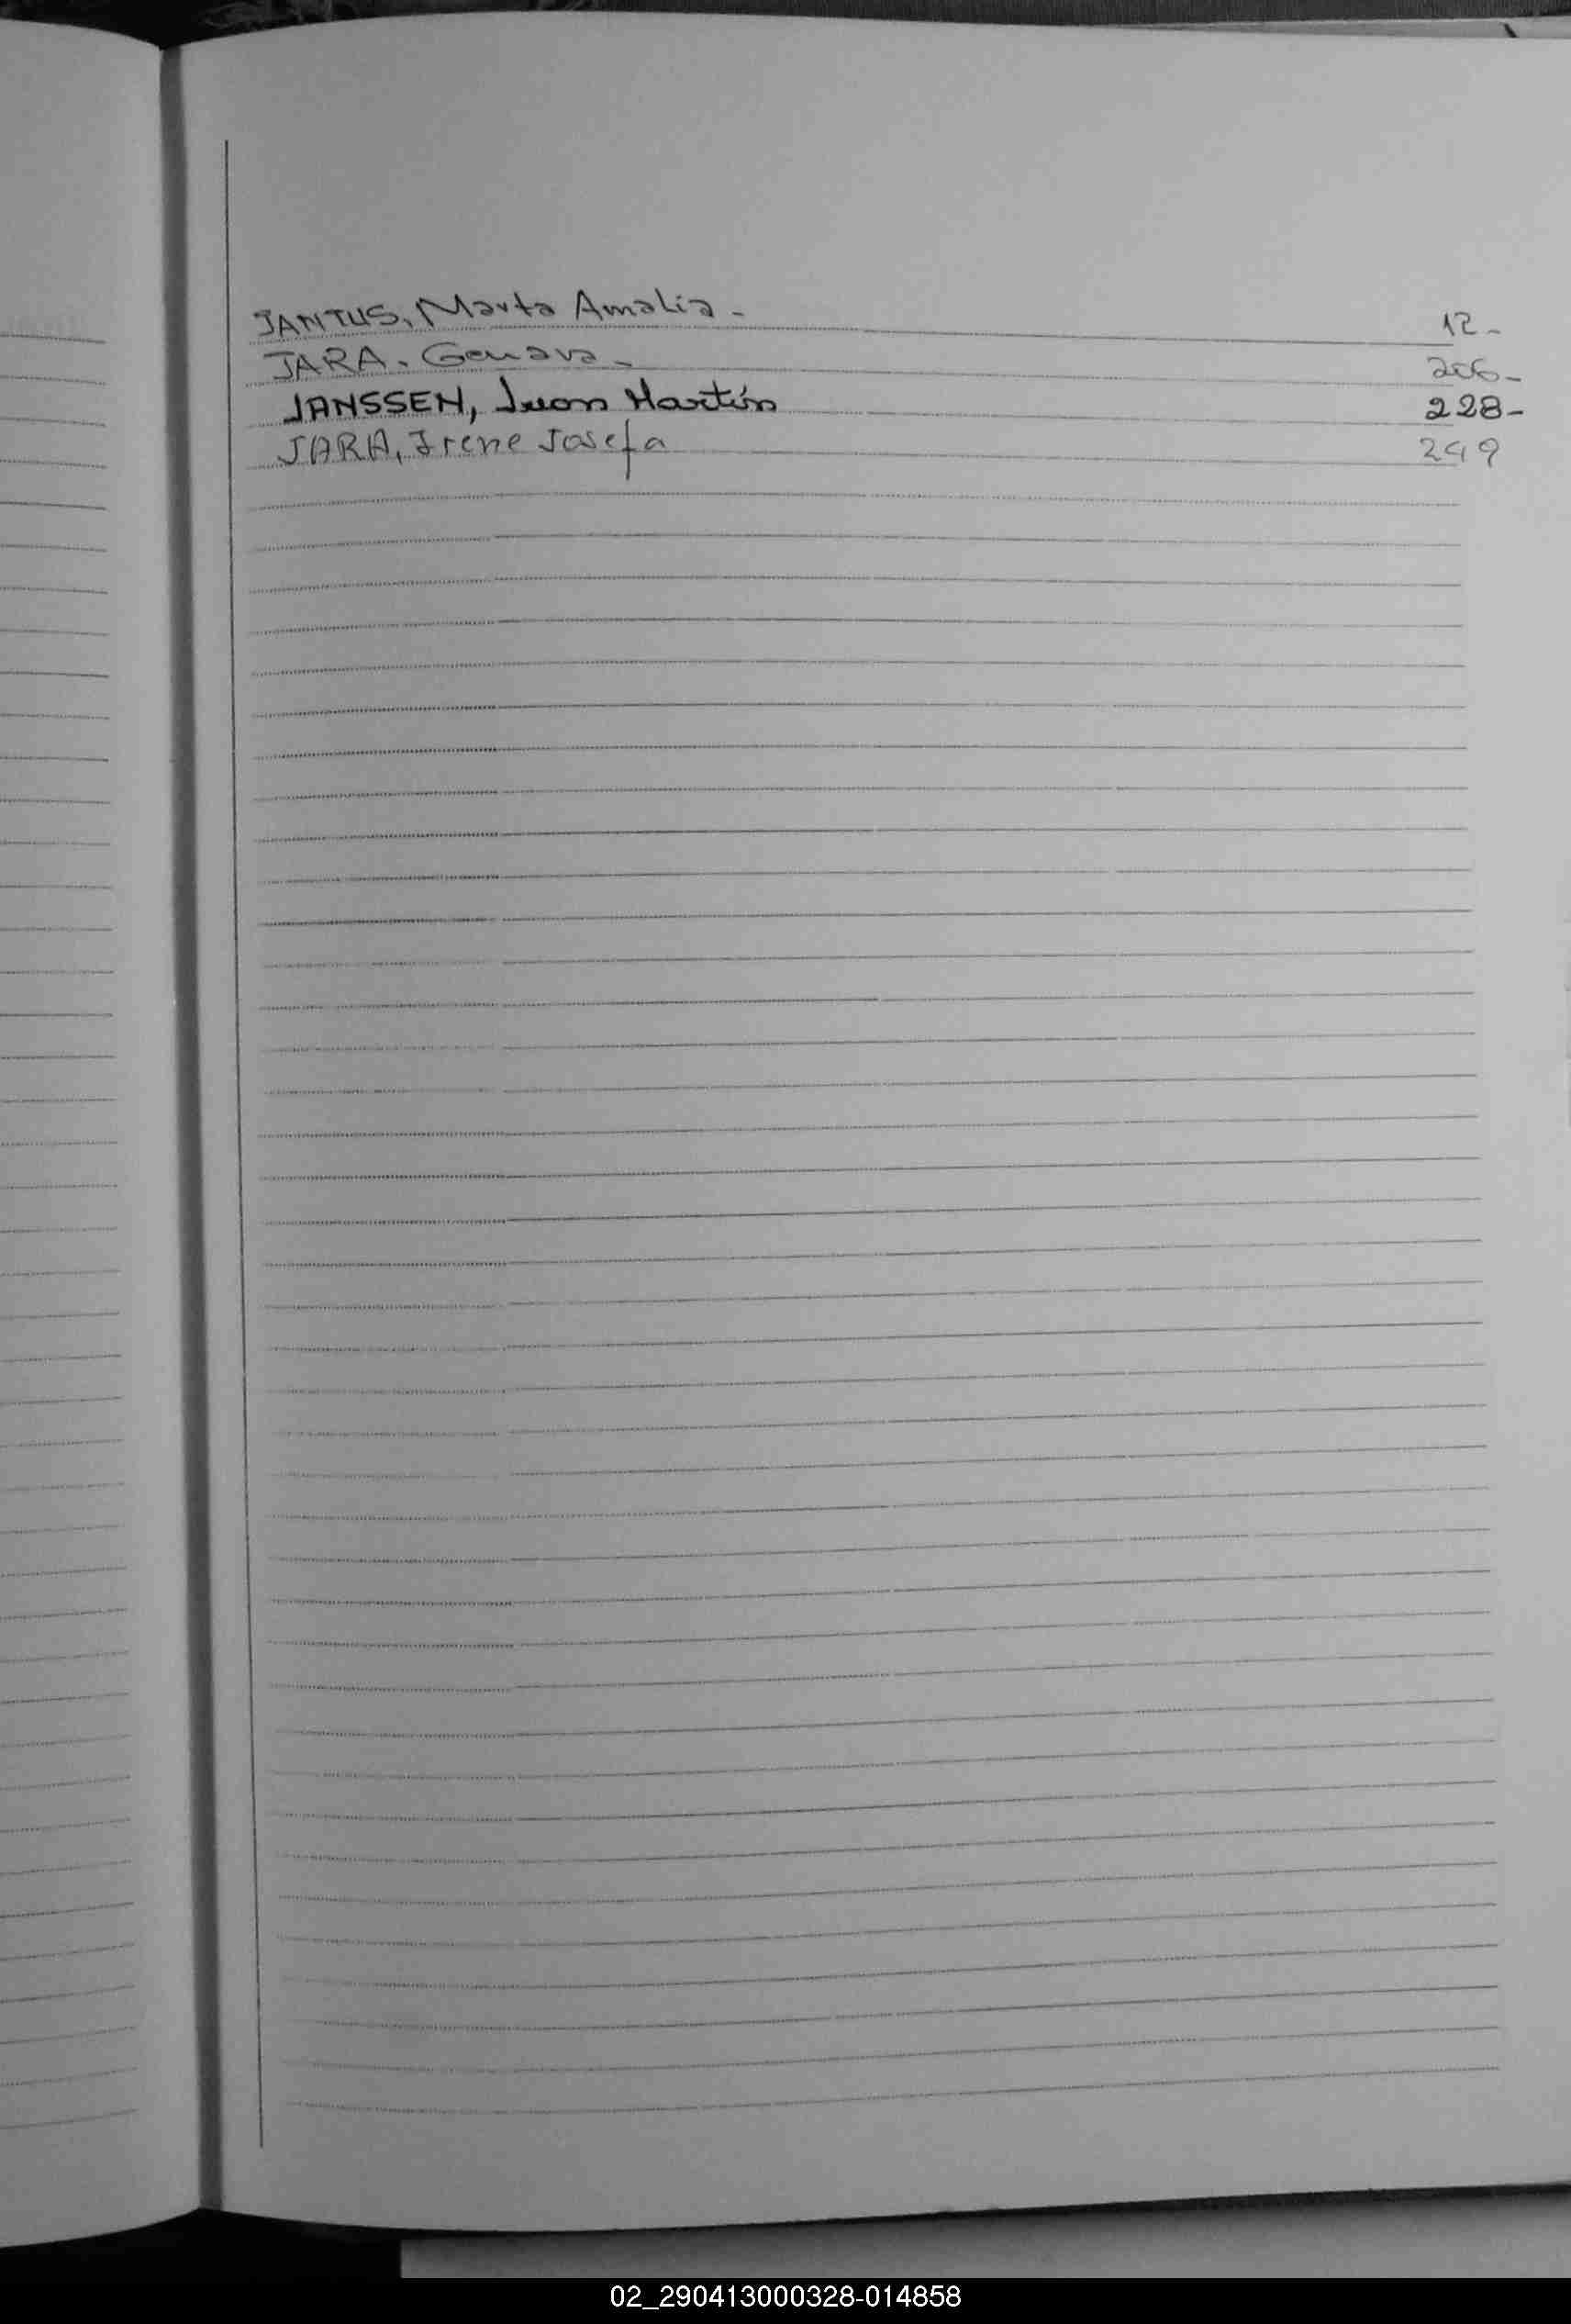 JANTUS, Marta Amalia - 12-
JARA. Genara - 206-
JANSSEN, Juan Martín 228-
JARA, Irene Josefa 249
02_290413000328-014858